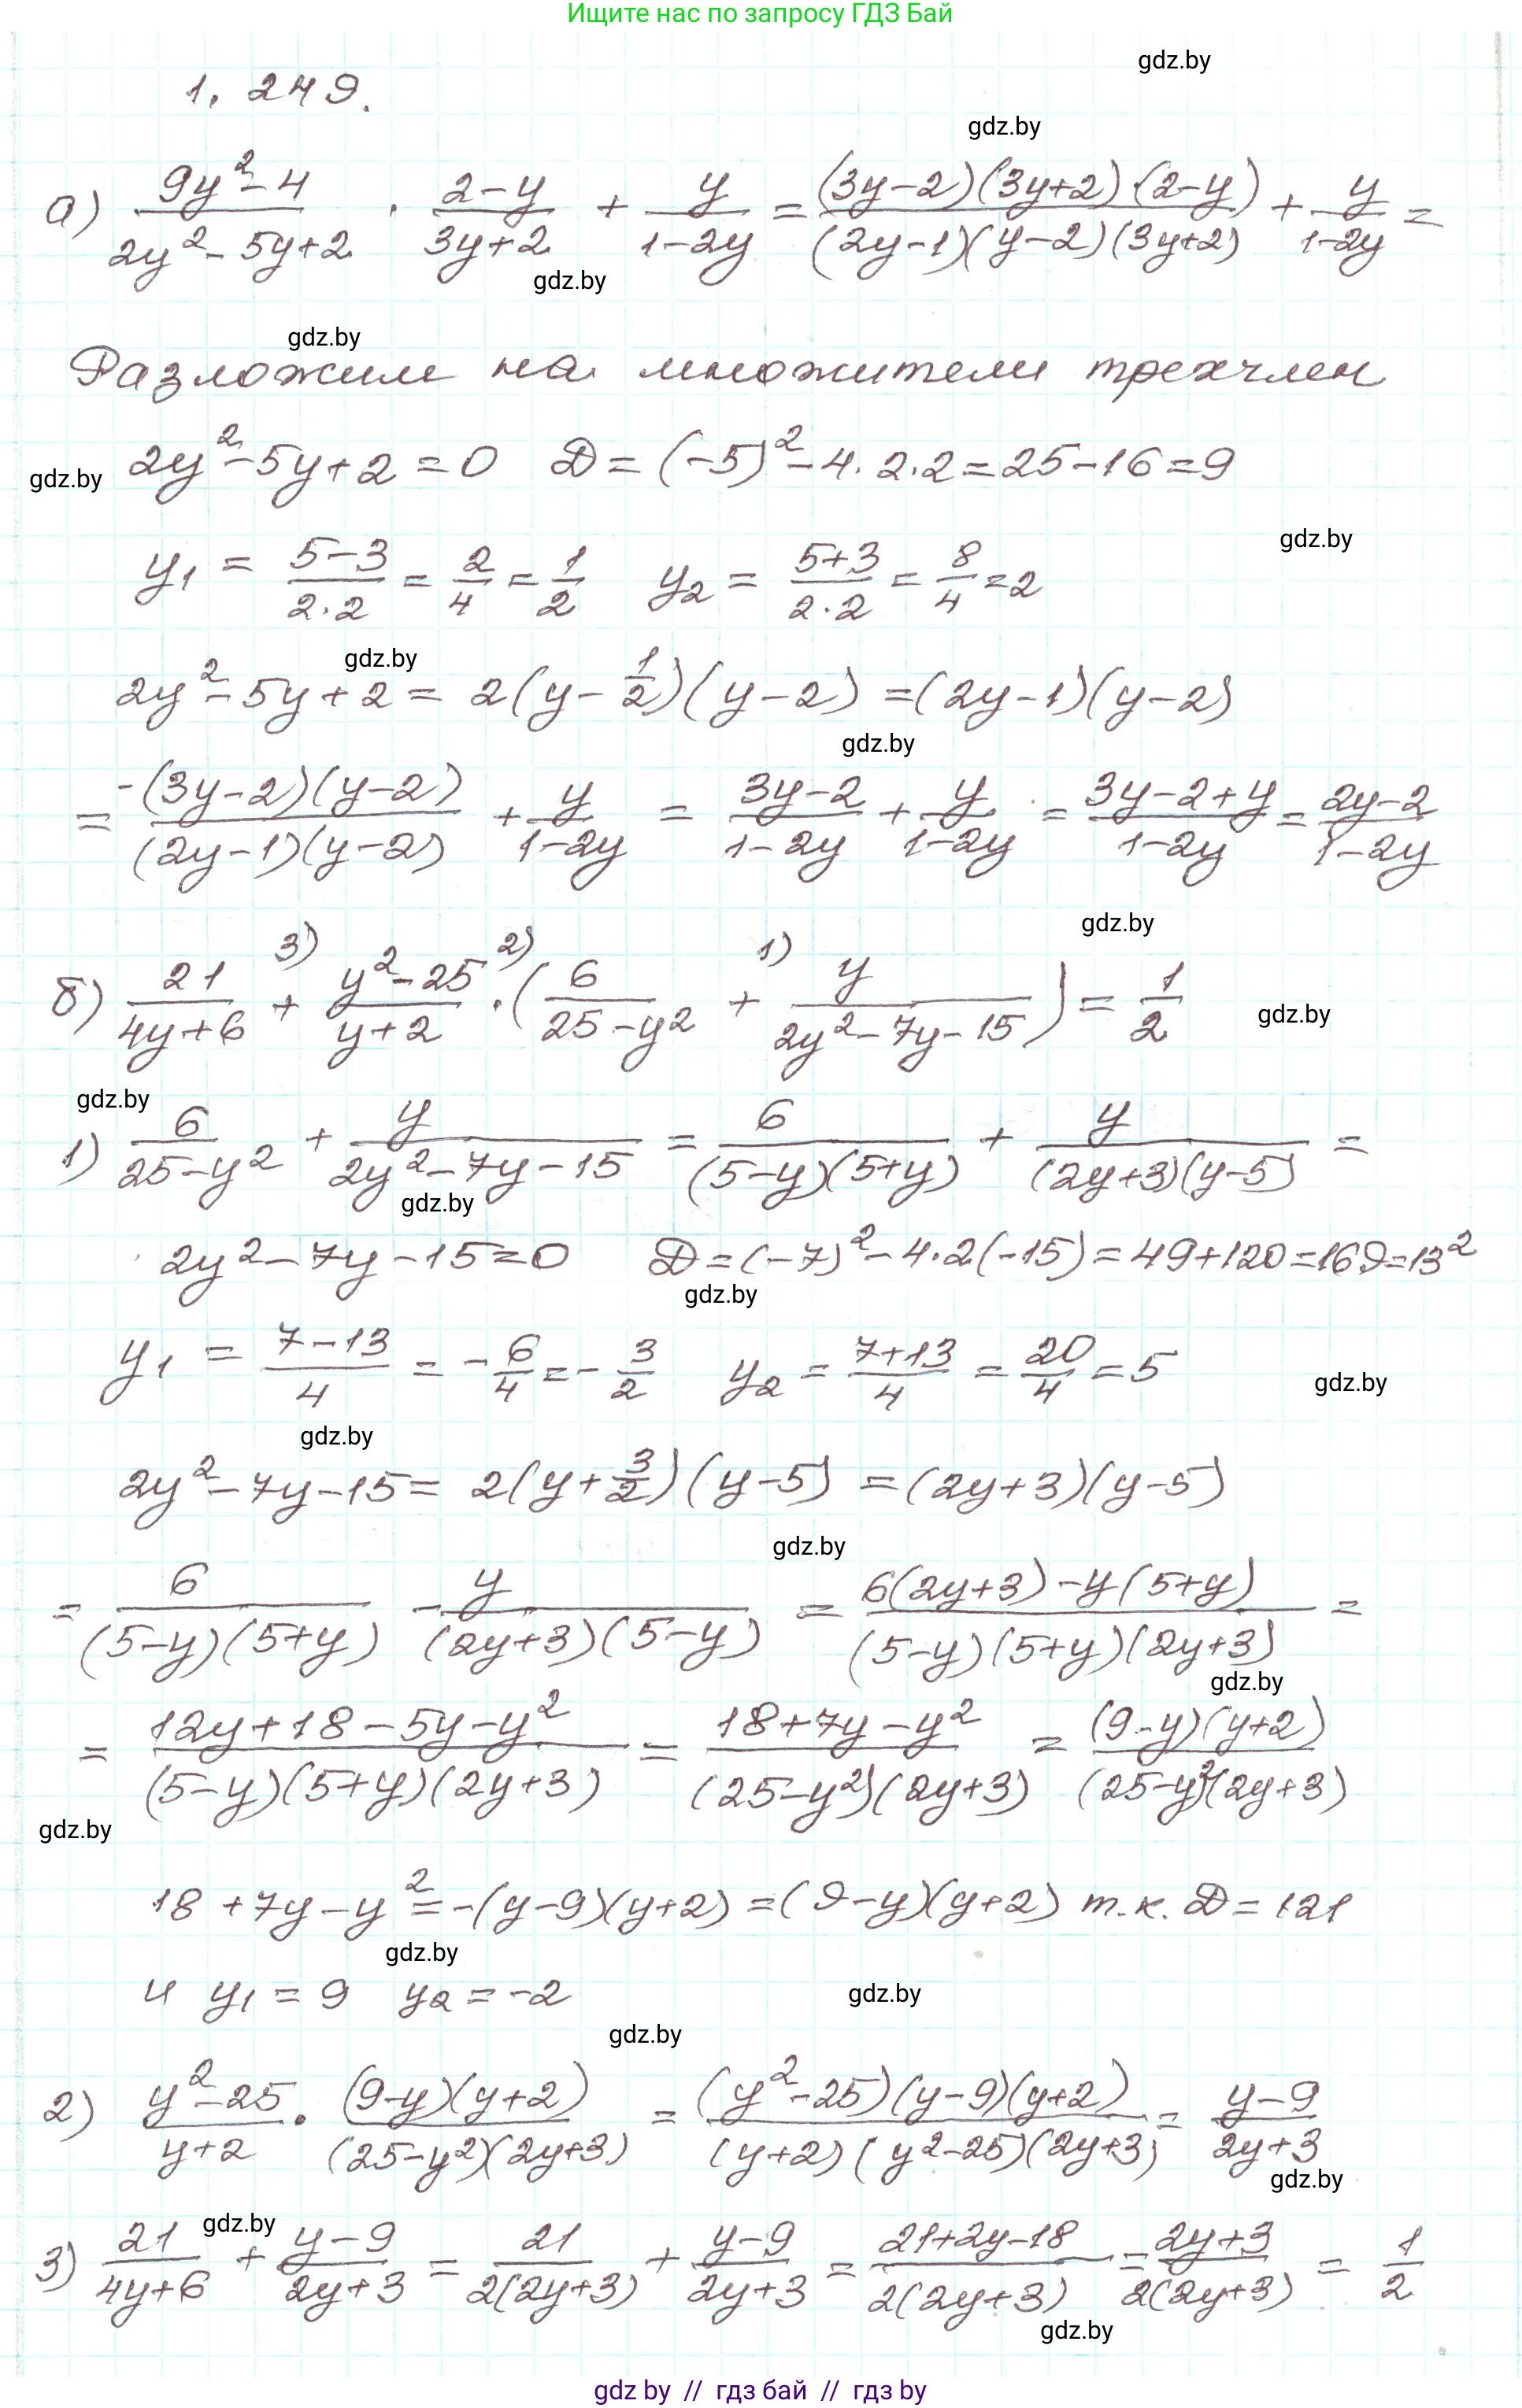 Ищите нас по запросу ГДЗ Бай
gdz.by
1. 249.
gdz.by
а) (9y²-4)/(2y²-5y+2) · (2-y)/(3y+2) + y/(1-2y) = ((3y-2)(3y+2)·(2-y))/((2y-1)(y-2)(3y+2)) + y/(1-2y) =
gdz.by
gdz.by
Разложим на множители трехчлен
gdz.by 2y²-5y+2=0 D=(-5)²-4·2·2=25-16=9
gdz.by
y₁ = (5-3)/(2·2) = 2/4 = 1/2 y₂ = (5+3)/(2·2) = 8/4 = 2
gdz.by
2y²-5y+2 = 2(y-1/2)(y-2) = (2y-1)(y-2)
gdz.by
= (-(3y-2)(y-2))/((2y-1)(y-2)) + y/(1-2y) = (3y-2)/(1-2y) + y/(1-2y) = (3y-2+y)/(1-2y) = (2y-2)/(1-2y)
gdz.by
3) 2) 1)
б) 21/(4y+6) + (y²-25)/(y+2) · (6/(25-y²) + y/(2y²-7y-15)) = 1/2
gdz.by
gdz.by
1) 6/(25-y²) + y/(2y²-7y-15) = 6/((5-y)(5+y)) + y/((2y+3)(y-5)) =
gdz.by
2y²-7y-15=0 D=(-7)²-4·2(-15)=49+120=169=13²
gdz.by
y₁ = (7-13)/4 = -6/4 = -3/2 y₂ = (7+13)/4 = 20/4 = 5
gdz.by
gdz.by
2y²-7y-15 = 2(y+3/2)(y-5) = (2y+3)(y-5)
gdz.by
= 6/((5-y)(5+y)) - y/((2y+3)(5-y)) = (6(2y+3)-y(5+y))/((5-y)(5+y)(2y+3)) =
gdz.by
= (12y+18-5y-y²)/((5-y)(5+y)(2y+3)) = (18+7y-y²)/((25-y²)(2y+3)) = ((9-y)(y+2))/((25-y²)(2y+3))
gdz.by
18+7y-y² = -(y-9)(y+2) = (9-y)(y+2) т.к. D=121
gdz.by
и y₁ = 9 y₂ = -2
gdz.by
gdz.by
2) (y²-25)/(y+2) · ((9-y)(y+2))/((25-y²)(2y+3)) = ((y²-25)(y-9)(y+2))/((y+2)(y²-25)(2y+3)) = (y-9)/(2y+3)
gdz.by
gdz.by
3) 21/(4y+6) + (y-9)/(2y+3) = 21/(2(2y+3)) + (y-9)/(2y+3) = (21+2y-18)/(2(2y+3)) = (2y+3)/(2(2y+3)) = 1/2
gdz.by
gdz by // гдз бай // гдз by